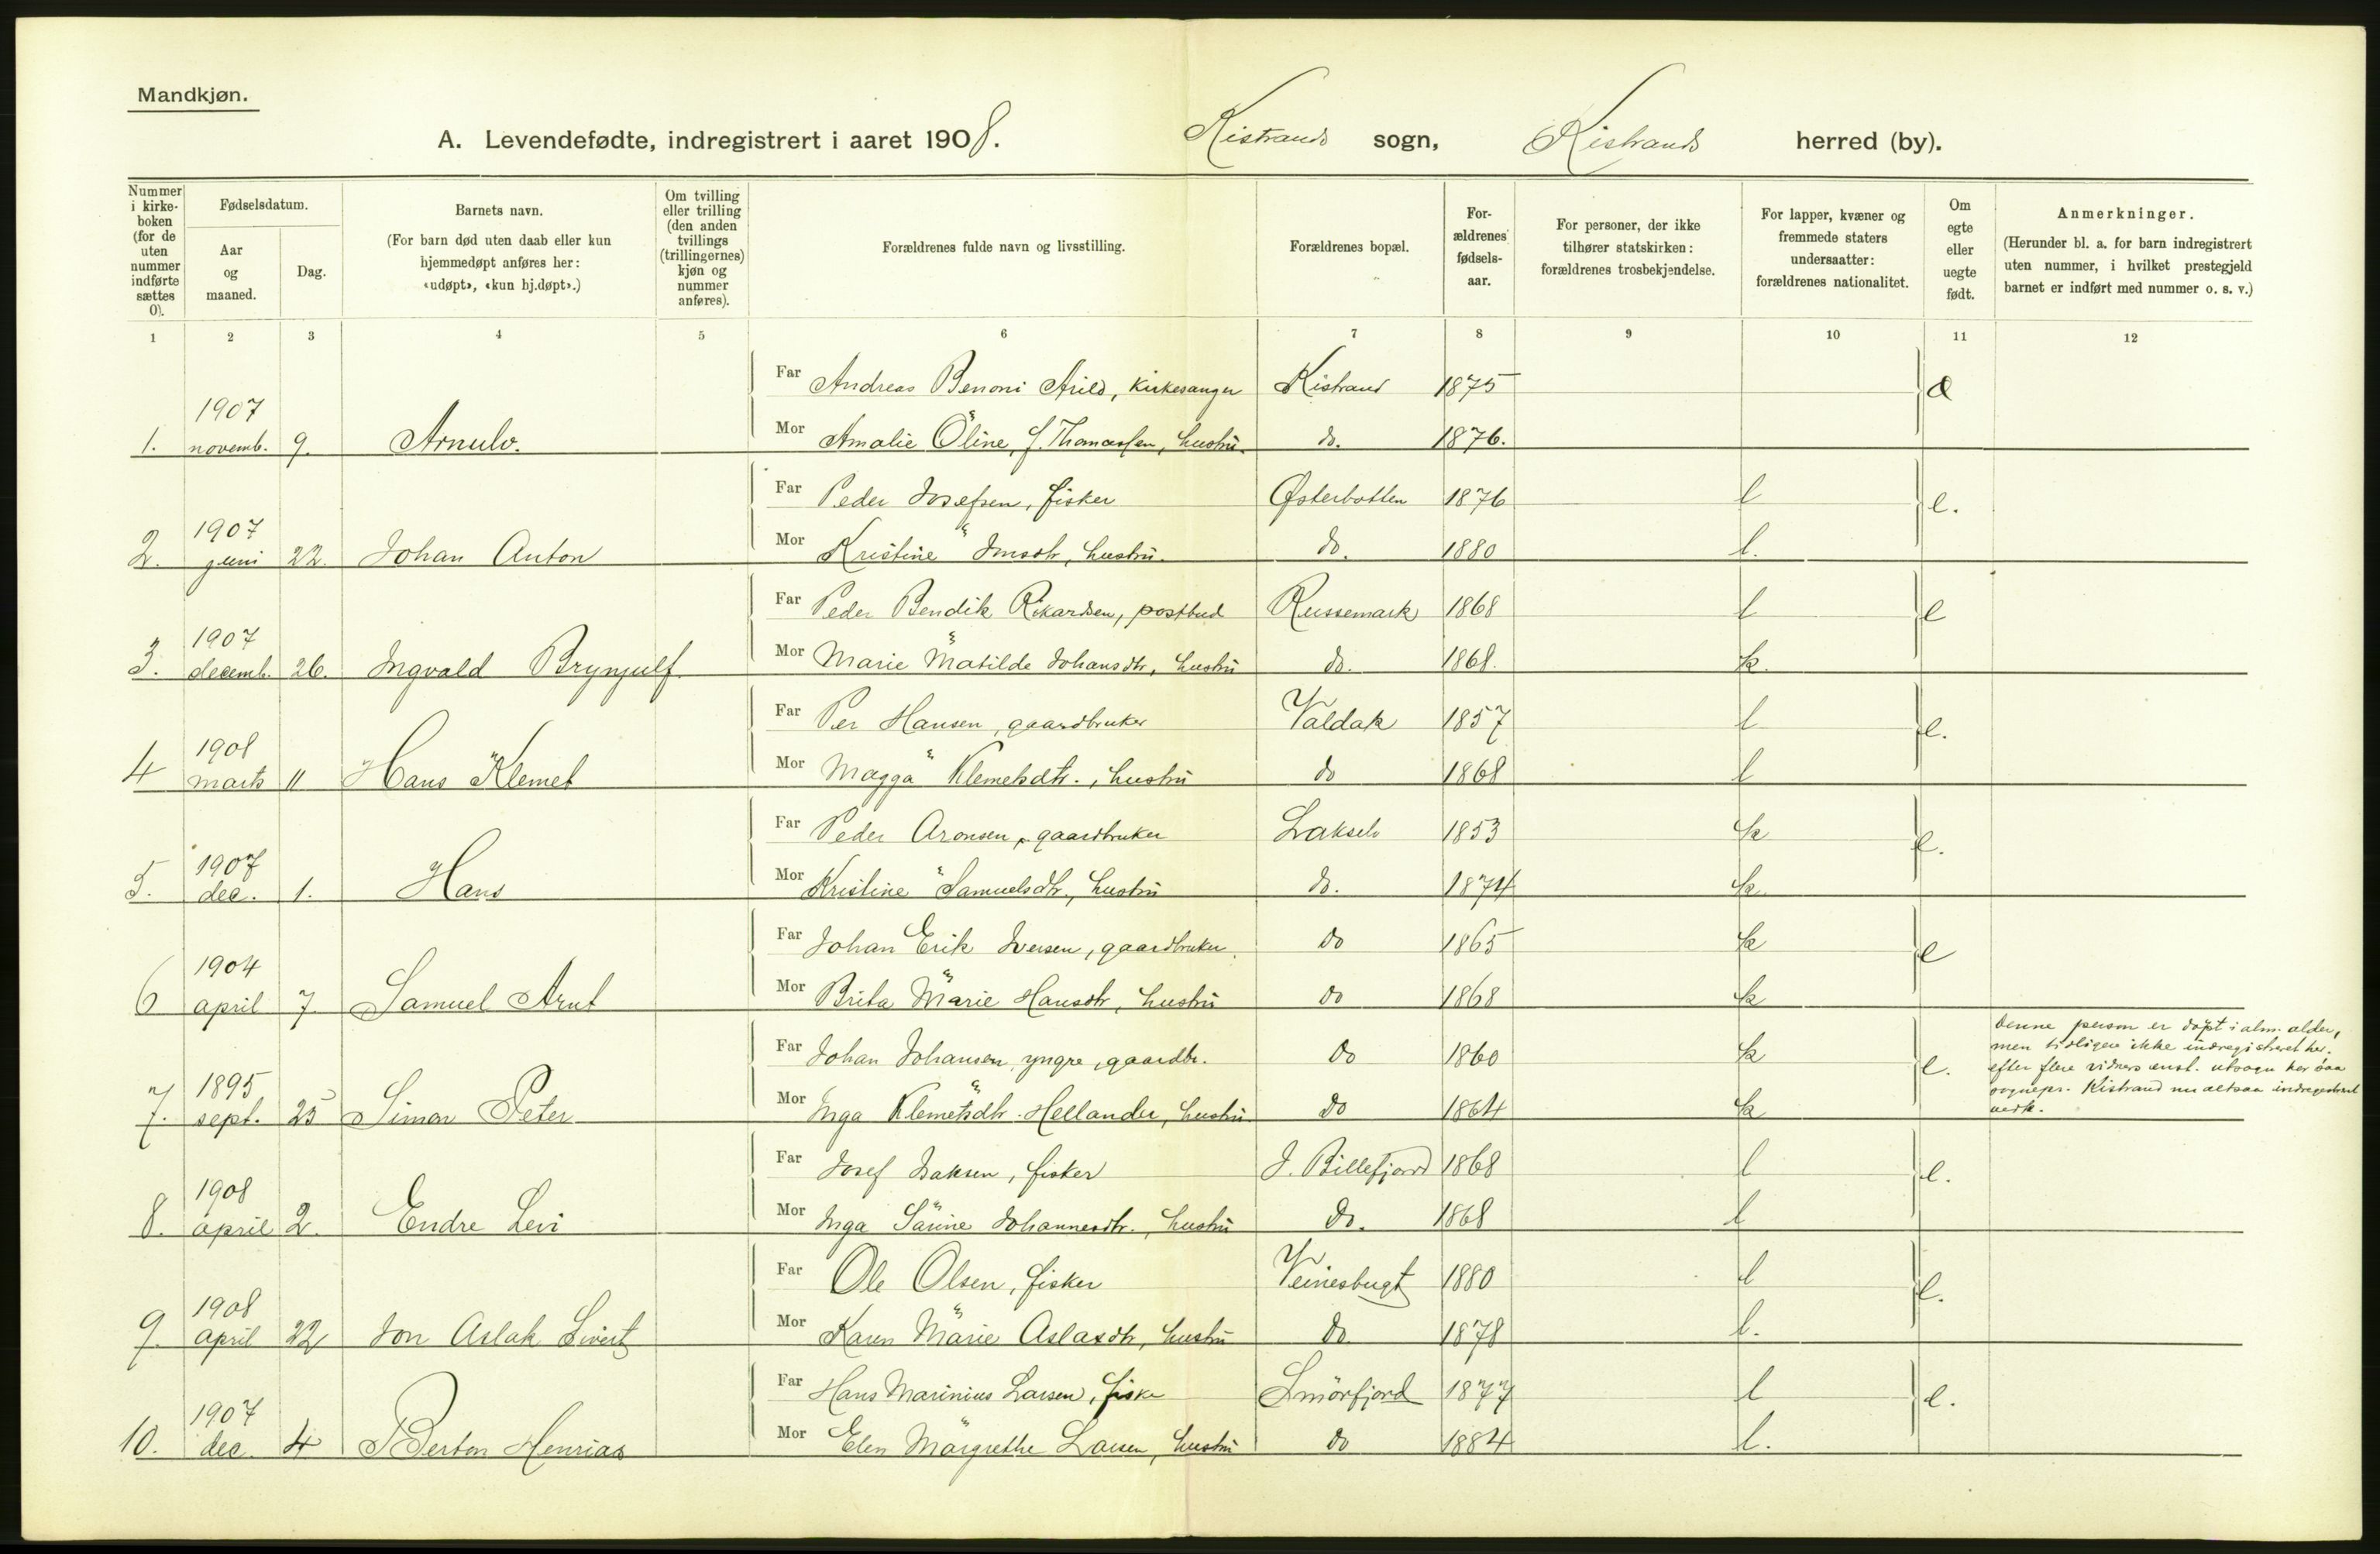 Mandkjøn.
A. Levendefødte, indregistrert i aaret 1908. Kistrands sogn, Kistrands herred (by).
Nummer i kirke-boken (for de uten nummer indførte sættes 0).
Fødselsdatum.
Aar og maaned.
Dag.
Barnets navn.
(For barn død uten daab eller kun hjemmedøpt anføres her: «udøpt», «kun hj.døpt».)
Om tvilling eller trilling (den anden tvillings (trillingernes) kjøn og nummer anføres).
Forældrenes fulde navn og livsstilling.
Forældrenes bopæl.
For-ældrenes fødsels-aar.
For personer, der ikke tilhører statskirken: forældrenes trosbekjendelse.
For lapper, kvæner og fremmede staters undersaatter: forældrenes nationalitet.
Om egte eller uegte født.
Anmerkninger.
(Herunder bl. a. for barn indregistrert uten nummer, i hvilket prestegjeld barnet er indført med nummer o. s. v.)
1 2 3 4 5 6 7 8 9 10 11 12
Far Andreas Benoni Arild, kirkesanger Kistrand 1875 e
1. 1907 novemb. 9. Arnulv. Mor Amalie Oline, f. Thomassen, hustru. do. 1876.
Far Peder Josefsen, fisker Østerbotten 1876 l e.
2. 1907 juni 22. Johan Anton Mor Kristine Jonsdtr, hustru. do. 1880 l.
Far Peder Bendik Rikardsen, postbud Russemark 1868 l e
3. 1907 decemb. 26. Ingvald Brynjulf. Mor Marie Matilde Johansdtr, hustru do. 1868. k.
Far Per Hansen, gaardbruker Valdak 1857 l e.
4 1908 marts 11 Hans Klemet Mor Magga Klemetsdtr., hustru do 1868 l
Far Peder Aronsen, gaardbruker Lakselv 1853 k e.
5. 1907 dec. 1. Hans Mor Kristine Samuelsdtr, hustru do. 1874 k.
Far Johan Erik Iversen, gaardbruker. do 1865 k e
6 1904 april 7. Samuel Arnt Mor Brita Marie Hansdtr, hustru do 1868 k
Far Johan Johansen yngre, gaardbr. do 1860 k e.
Denne person er döpt i alm. alder,
men tidligere ikke indregistreret her.
efter flere vidners utsagn her
sognepr. Kistrand nu altsaa indregistreret
7. 1895 sept. 25 Simon Peter Mor Inga Klemetsdtr. Hellander, hustru. do 1864 k
Far Josef Isaksen, fisker I. Billefjord 1868 l e.
8. 1908 april 2. Endre Levi Mor Inga Sarine Johannesdtr., hustru do. 1868 l
Far Ole Olsen, fisker Veinesbugt 1880 l e.
9. 1908 april 22 Jon Aslak Sivert Mor Karen Marie Aslaksdtr, hustru do 1878 l.
Far Hans Marinius Larsen, fisker Smörfjord 1877 l e.
10. 1907 dec. 4 Berton Henrias Mor Elen Margrethe Larsen, hustru do 1884 l.